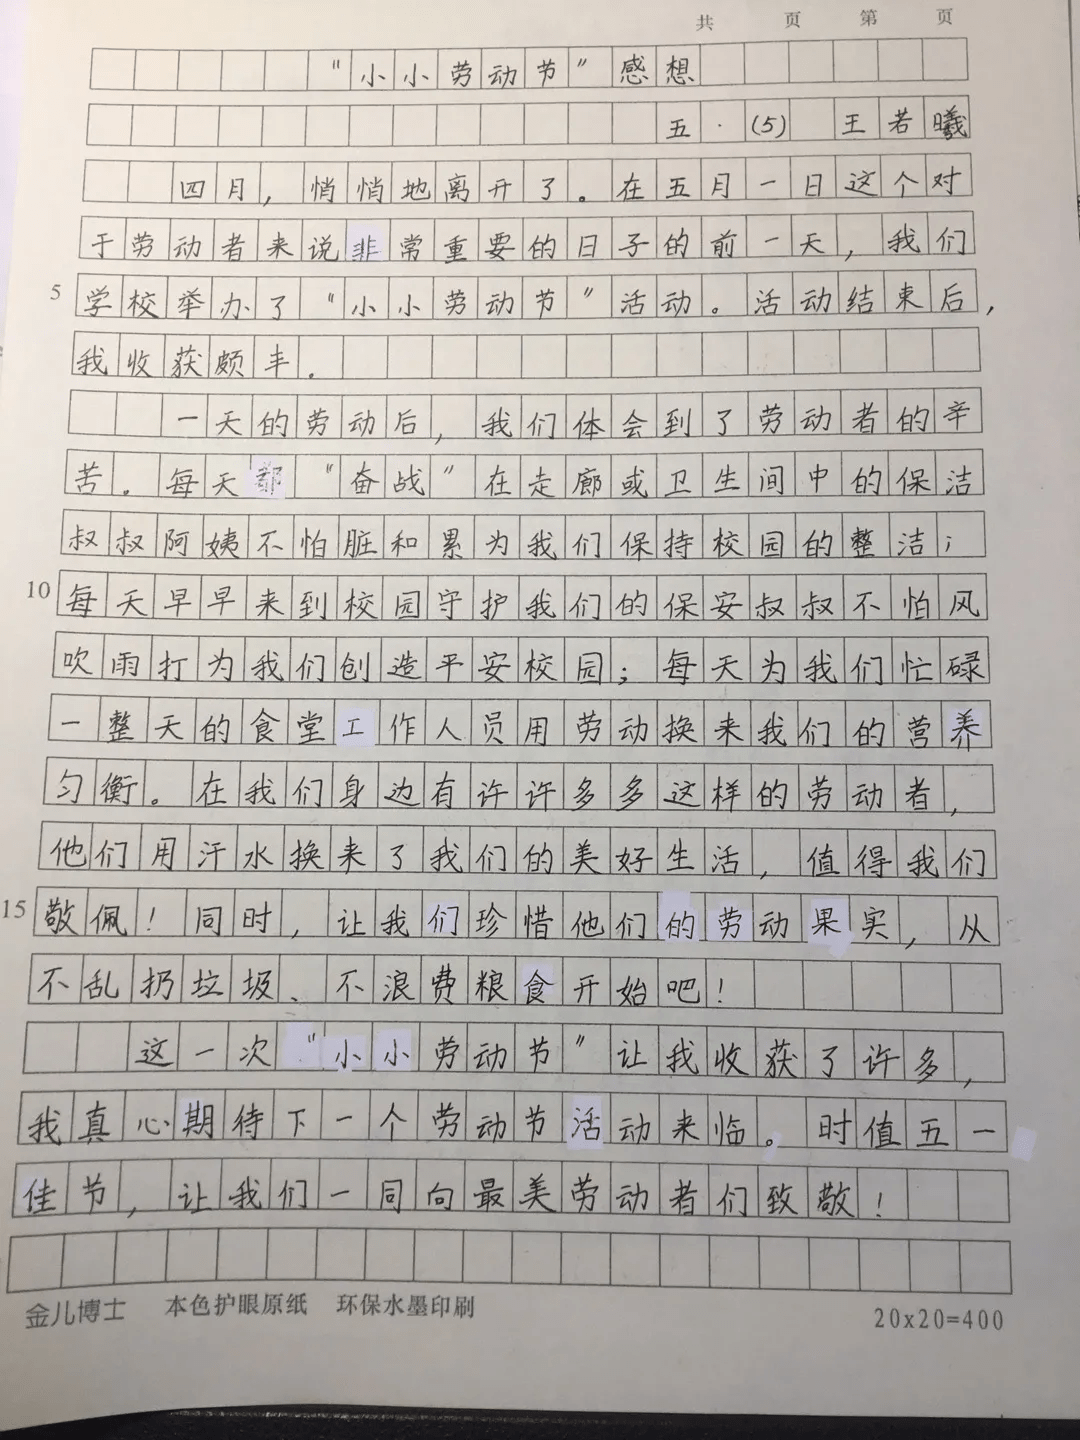 共 页 第 页
“小小劳动节”感想
五·(5) 王若曦
四月，悄悄地离开了。在五月一日这个对
于劳动者来说非常重要的日子的前一天，我们
5 学校举办了“小小劳动节”活动。活动结束后，
我收获颇丰。
一天的劳动后，我们体会到了劳动者的辛
苦。每天都“奋战”在走廊或卫生间中的保洁
叔叔阿姨不怕脏和累为我们保持校园的整洁；
10 每天早早来到校园守护我们的保安叔叔不怕风
吹雨打为我们创造平安校园；每天为我们忙碌
一整天的食堂工作人员用劳动换来我们的营养
匀衡。在我们身边有许许多多这样的劳动者，
他们用汗水换来了我们的美好生活，值得我们
15 敬佩！同时，让我们珍惜他们的劳动果实，从
不乱扔垃圾、不浪费粮食开始吧！
这一次“小小劳动节”让我收获了许多，
我真心期待下一个劳动节活动来临。时值五一
佳节，让我们一同向最美劳动者们致敬！
金儿博士 本色护眼原纸 环保水墨印刷 20x20=400